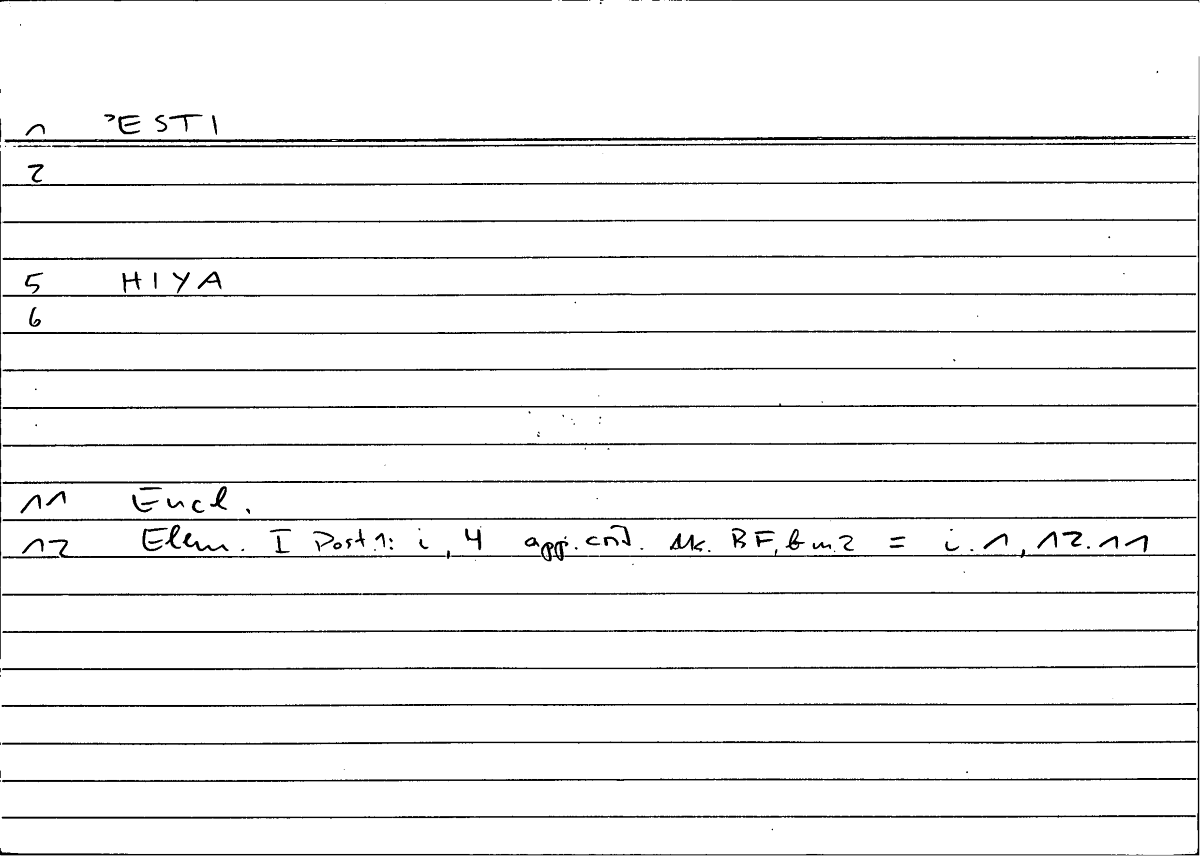 1 ʾESTI
2
5 HIYA
6
11 Eucl.
12 Elem. I Post.1: i, 4 app. crit. Ms. BF, b m.2 = i.1, 12.11